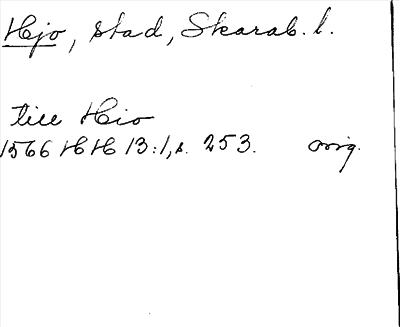 Hjo, stad, Skarab. l.
till Hio
1566 HH 13:1, s. 253. orig.